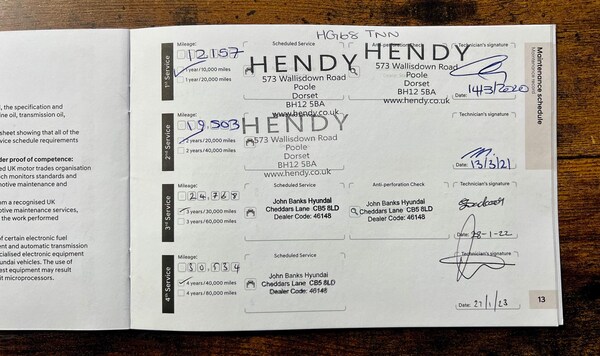 HG68 TNN
Maintenance schedule
Maintenance record
1st Service
Mileage:
12157
1 year/10,000 miles
1 year/20,000 miles
Scheduled Service
HENDY
573 Wallisdown Road
Poole
Dorset
BH12 5BA
www.hendy.co.uk
Anti-perforation Check
HENDY
573 Wallisdown Road
Poole
Dorset
BH12 5BA
www.hendy.co.uk
Technician's signature
Date: 14/3/2020
2nd Service
Mileage:
19,503
2 years/20,000 miles
2 years/40,000 miles
HENDY
573 Wallisdown Road
Poole
Dorset
BH12 5BA
www.hendy.co.uk
Technician's signature
Date: 13/3/21
3rd Service
Mileage:
24768
3 years/30,000 miles
3 years/60,000 miles
Scheduled Service
John Banks Hyundai
Cheddars Lane CB5 8LD
Dealer Code: 46148
Anti-perforation Check
John Banks Hyundai
Cheddars Lane CB5 8LD
Dealer Code: 46148
Technician's signature
Date: 28-1-22
4th Service
Mileage:
30534
4 years/40,000 miles
4 years/80,000 miles
Scheduled Service
John Banks Hyundai
Cheddars Lane CB5 8LD
Dealer Code: 46148
Technician's signature
Date: 27/1/23
13
, the specification and
ine oil, transmission oil,
sheet showing that all of the
vice schedule requirements
der proof of competence:
ed UK motor trades organisation
ch monitors standards and
motive maintenance and
from a recognised UK
otive maintenance services,
the work performed
of certain electronic fuel
ent and automatic transmission
cialised electronic equipment
undai vehicles. The use of
est equipment may result
it microprocessors.